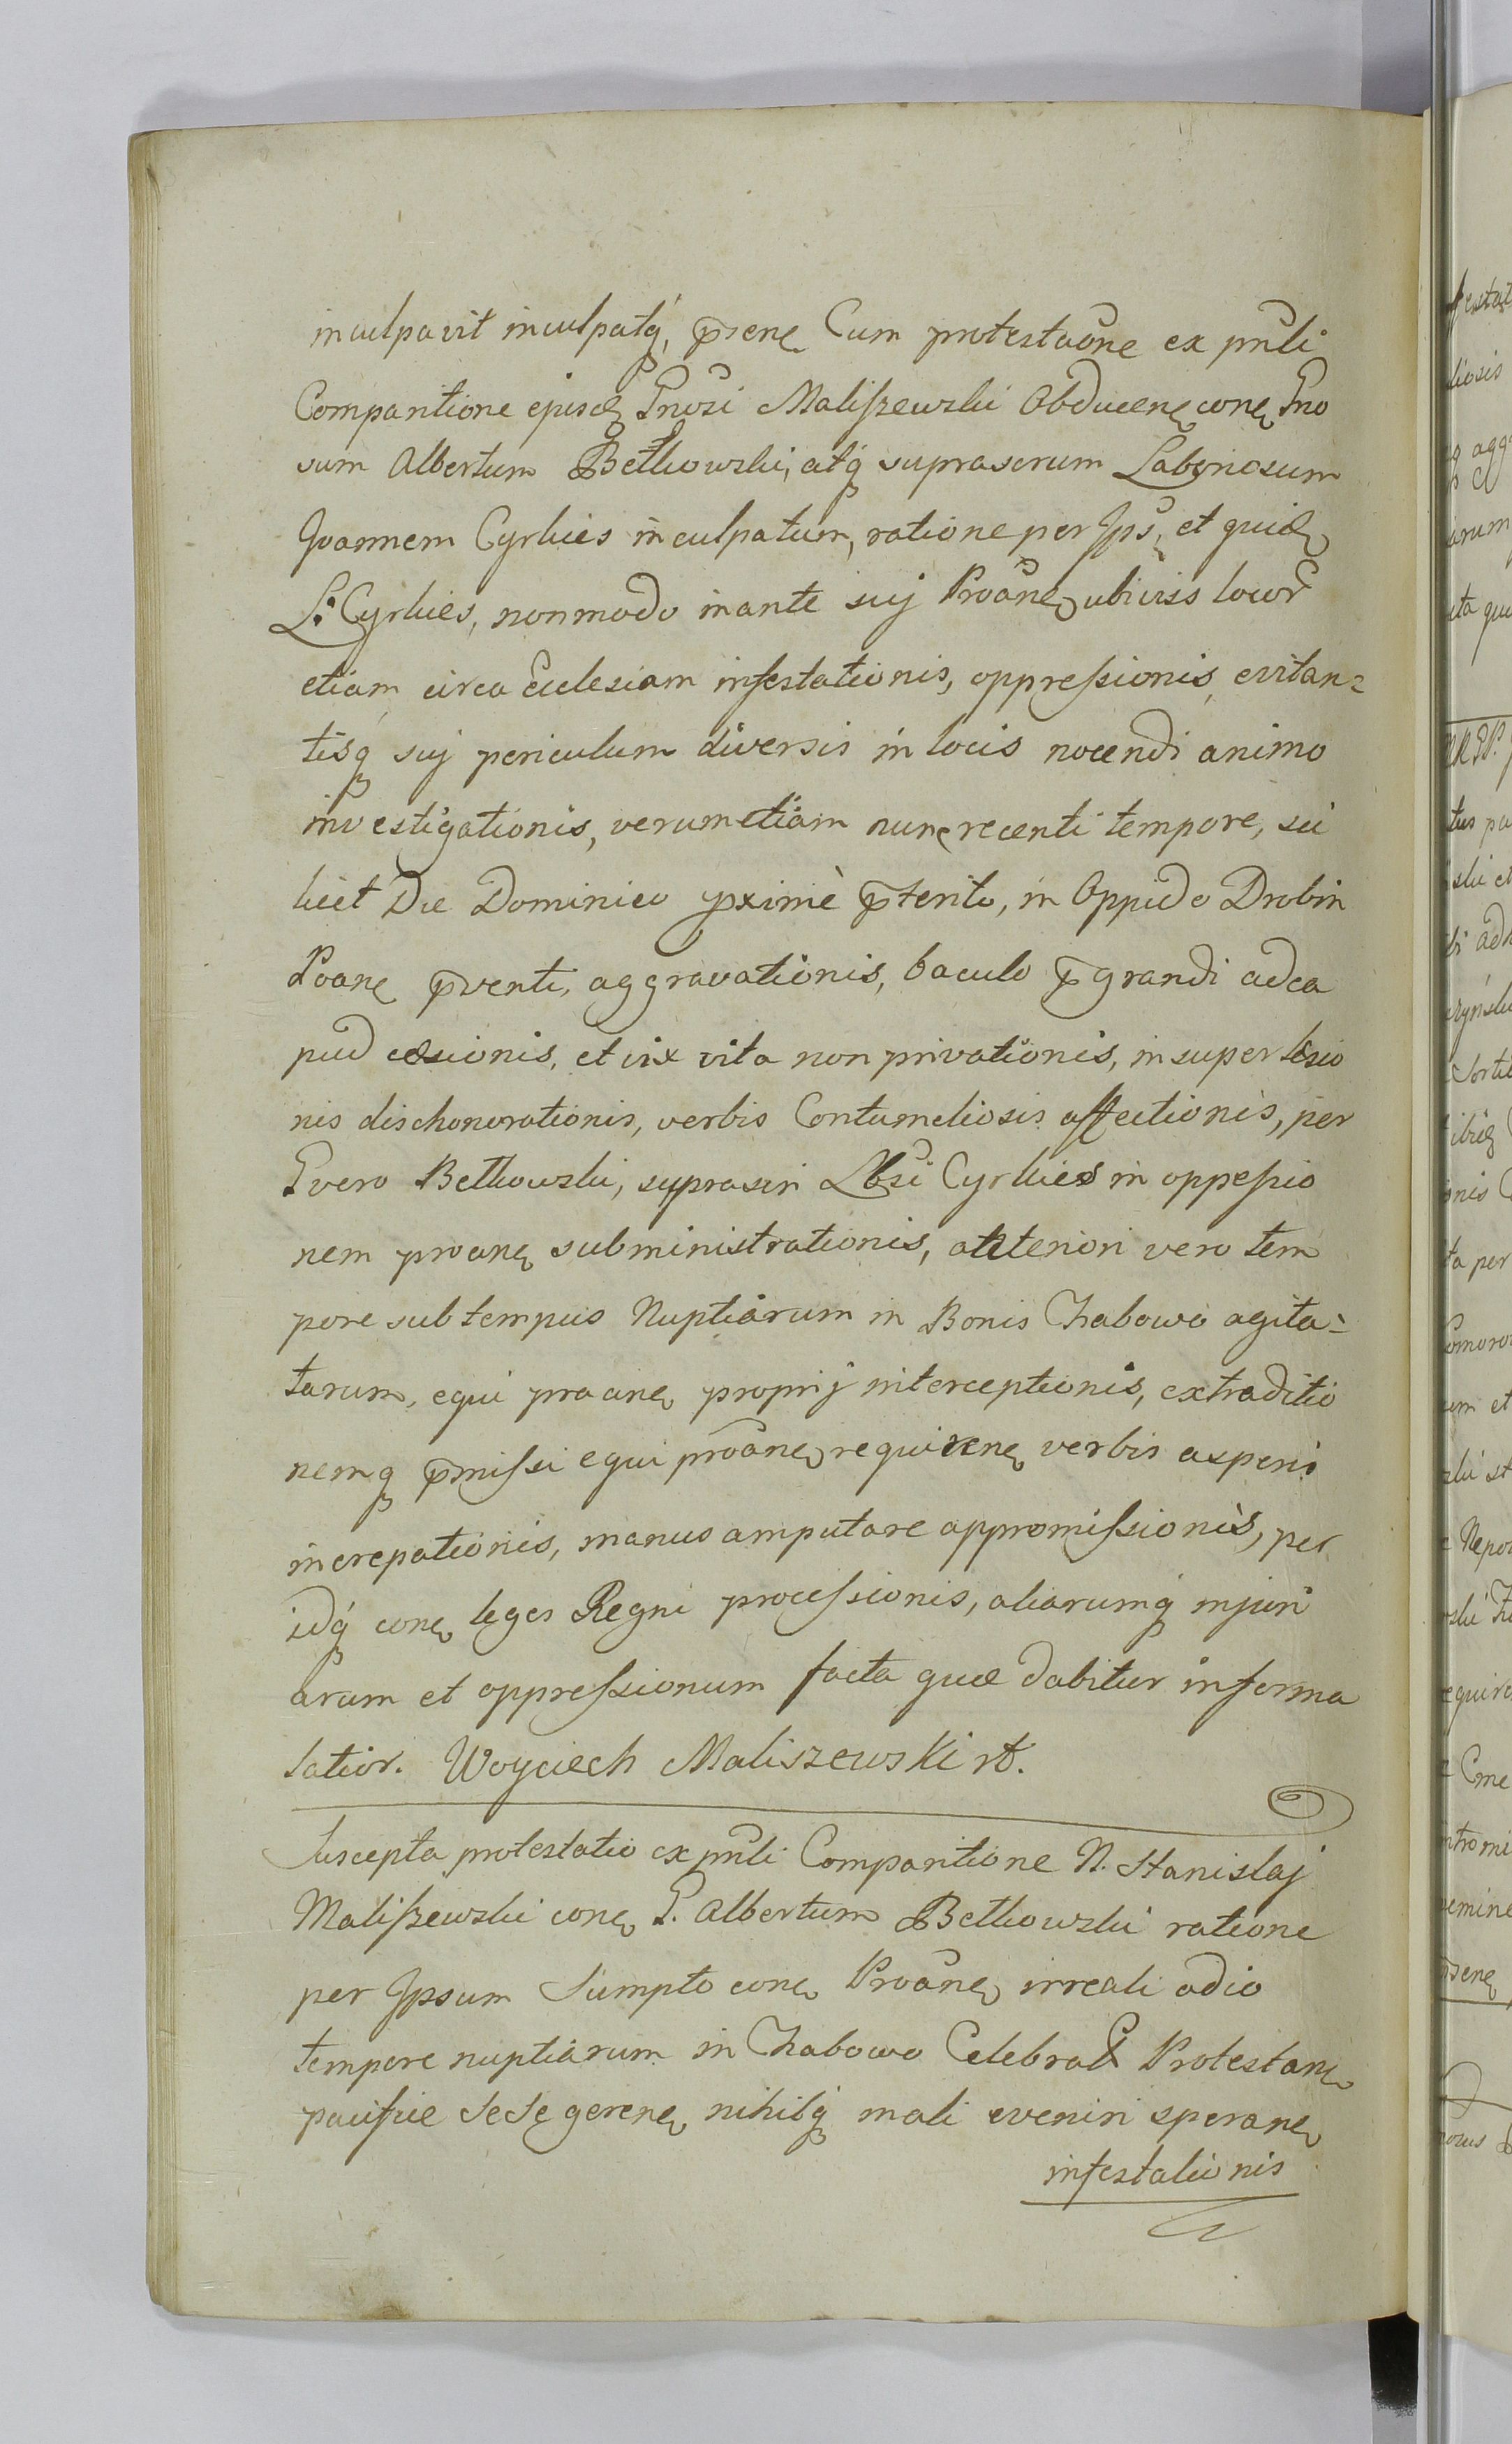 inculpavit inculpatq, prsene Cum protestaōne ex pn̄li
Comparitione ejusđ Gnosi Maliszewski Obducenę conę Gno
sum Albertum Betkowski, atq suprascrum Laboriosum
Joannem Cyrkies inculpatum, ratione per Ips, et quidę
L. Cyrkies, nonmodo inante suj Proānę ubivis locor
etiam circa Ecclesiam infestationis, oppressionis, evitan=
tisq suj periculum diversis in locis nocendi animo
investigationis, verumetiam nunc recenti tempore, sci
licet Die Dominico pximè p̄terito, in Oppido Drobin
Poanę p̄venti, aggravationis, baculo p̄grandi ad ca
pud cæsionis, et vix vita non privationis, insuper læsio
nis dischonorationis, verbis Contumeliosis affectionis, per
G vero Betkowski, suprascri Lbsi Cyrkies in oppessio
nem proanę subministrationis, atteriori vero tem
pore sub tempus Nuptiarum in Bonis Chabowo agita=
tarum, equi proanę proprij interceptionis, extraditio
nemq p̄missi equi proānę requirenę verbis asperis
increpationis, manus amputare appromissionis, per
idq conę leges Regni processionis, aliarumq injuri
arum et oppressionum facta quæ dabitur informa
latior. Woyciech Maliszewski rt.
Suscepta protestatio ex pn̄li Comparitione N. Stanislaj
Maliszewski conę G. Albertum Betkowski ratione
per Ipsum Sumpto conę Proānę irreali odio
tempore nuptiarum in Chabowo Celebrat Protestanę
pacifice Sese gerenę nihilq mali eveniri speranę
infestationis